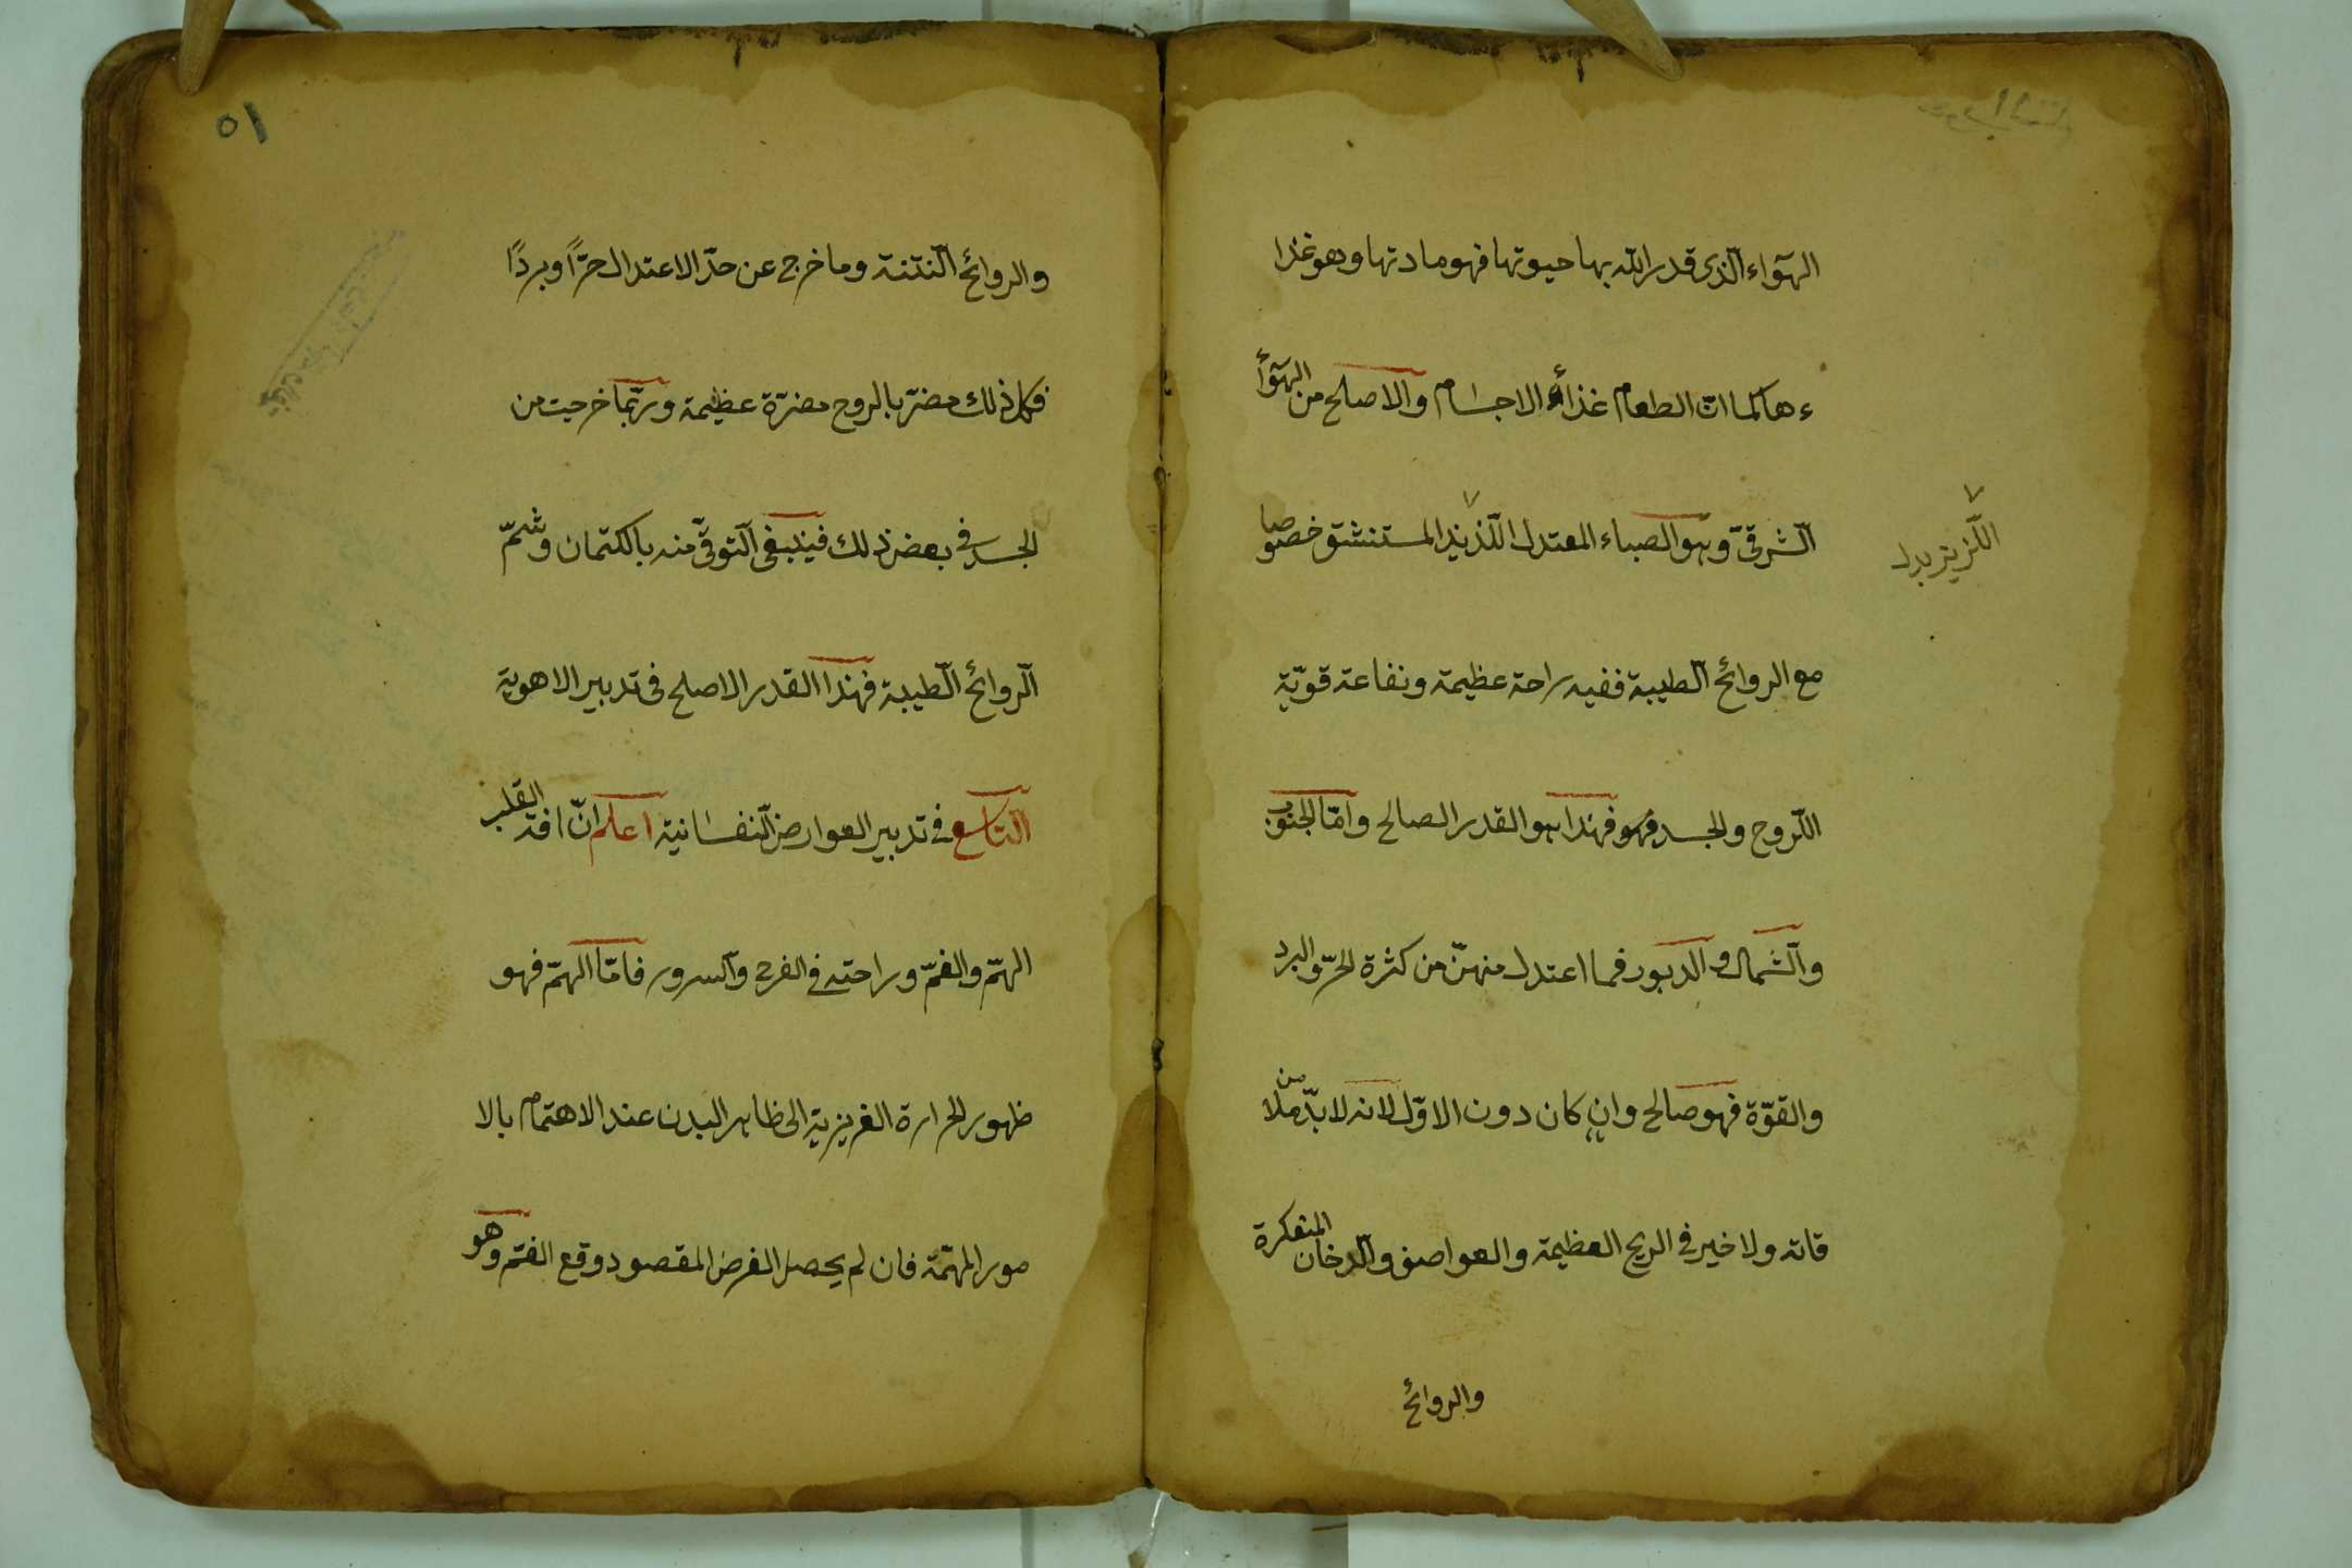 الهوٓاء الّذى قدر اللّٰه بها حيوتها فهو مادتها وهو غذا
ء ها كما انّ الطعام غذأء الاجسام والاصلح من الهوٓأ
الشرقىّ وهو الصباء المعتدل اللّذيذ المستنشق خصوصا
اللّزيز بدل
مع الروائح الطيبة ففيه راحة عظيمة ونفاعة قويّة
اللّروح والجسد فهو فهذا هو القدر الصالح وامّا الجنوب
والشمال والدبور فما اعتدل منهنّ من كثرة الحرّ والبرد
والقوّة فهو صالح وان كان دون الاوّل لانه لا بدّ من ملا
قاته ولا خير فى الريح العظيمة والعواصف والدخان المتعكرة
والروائح
٥١
والروائح النتنة وما خرج عن حدّ الاعتدال حرّاً وبردًا
فكل ذلك مضرّ بالروح مضرّة عظيمة وربّما خرجت من
الجسد فى بعض ذلك فينبغى التوقّى منه بالكتمان وشمّ
الروائح الطيبة فهذا القدر الاصلح فى تدبير الاهوية
التاسع فى تدبير العوارض النفسانية اعلم انّ افة القلب
الهمّ والغمّ وراحته فى الفرح والسرور فامّا الهمّ فهو
ظهور الحرارة الغريزية الى ظاهر البدن عند الاهتمام بالا
مور المهمّة فان لم يحصل الغرض المقصود وقع الغمّ وهو